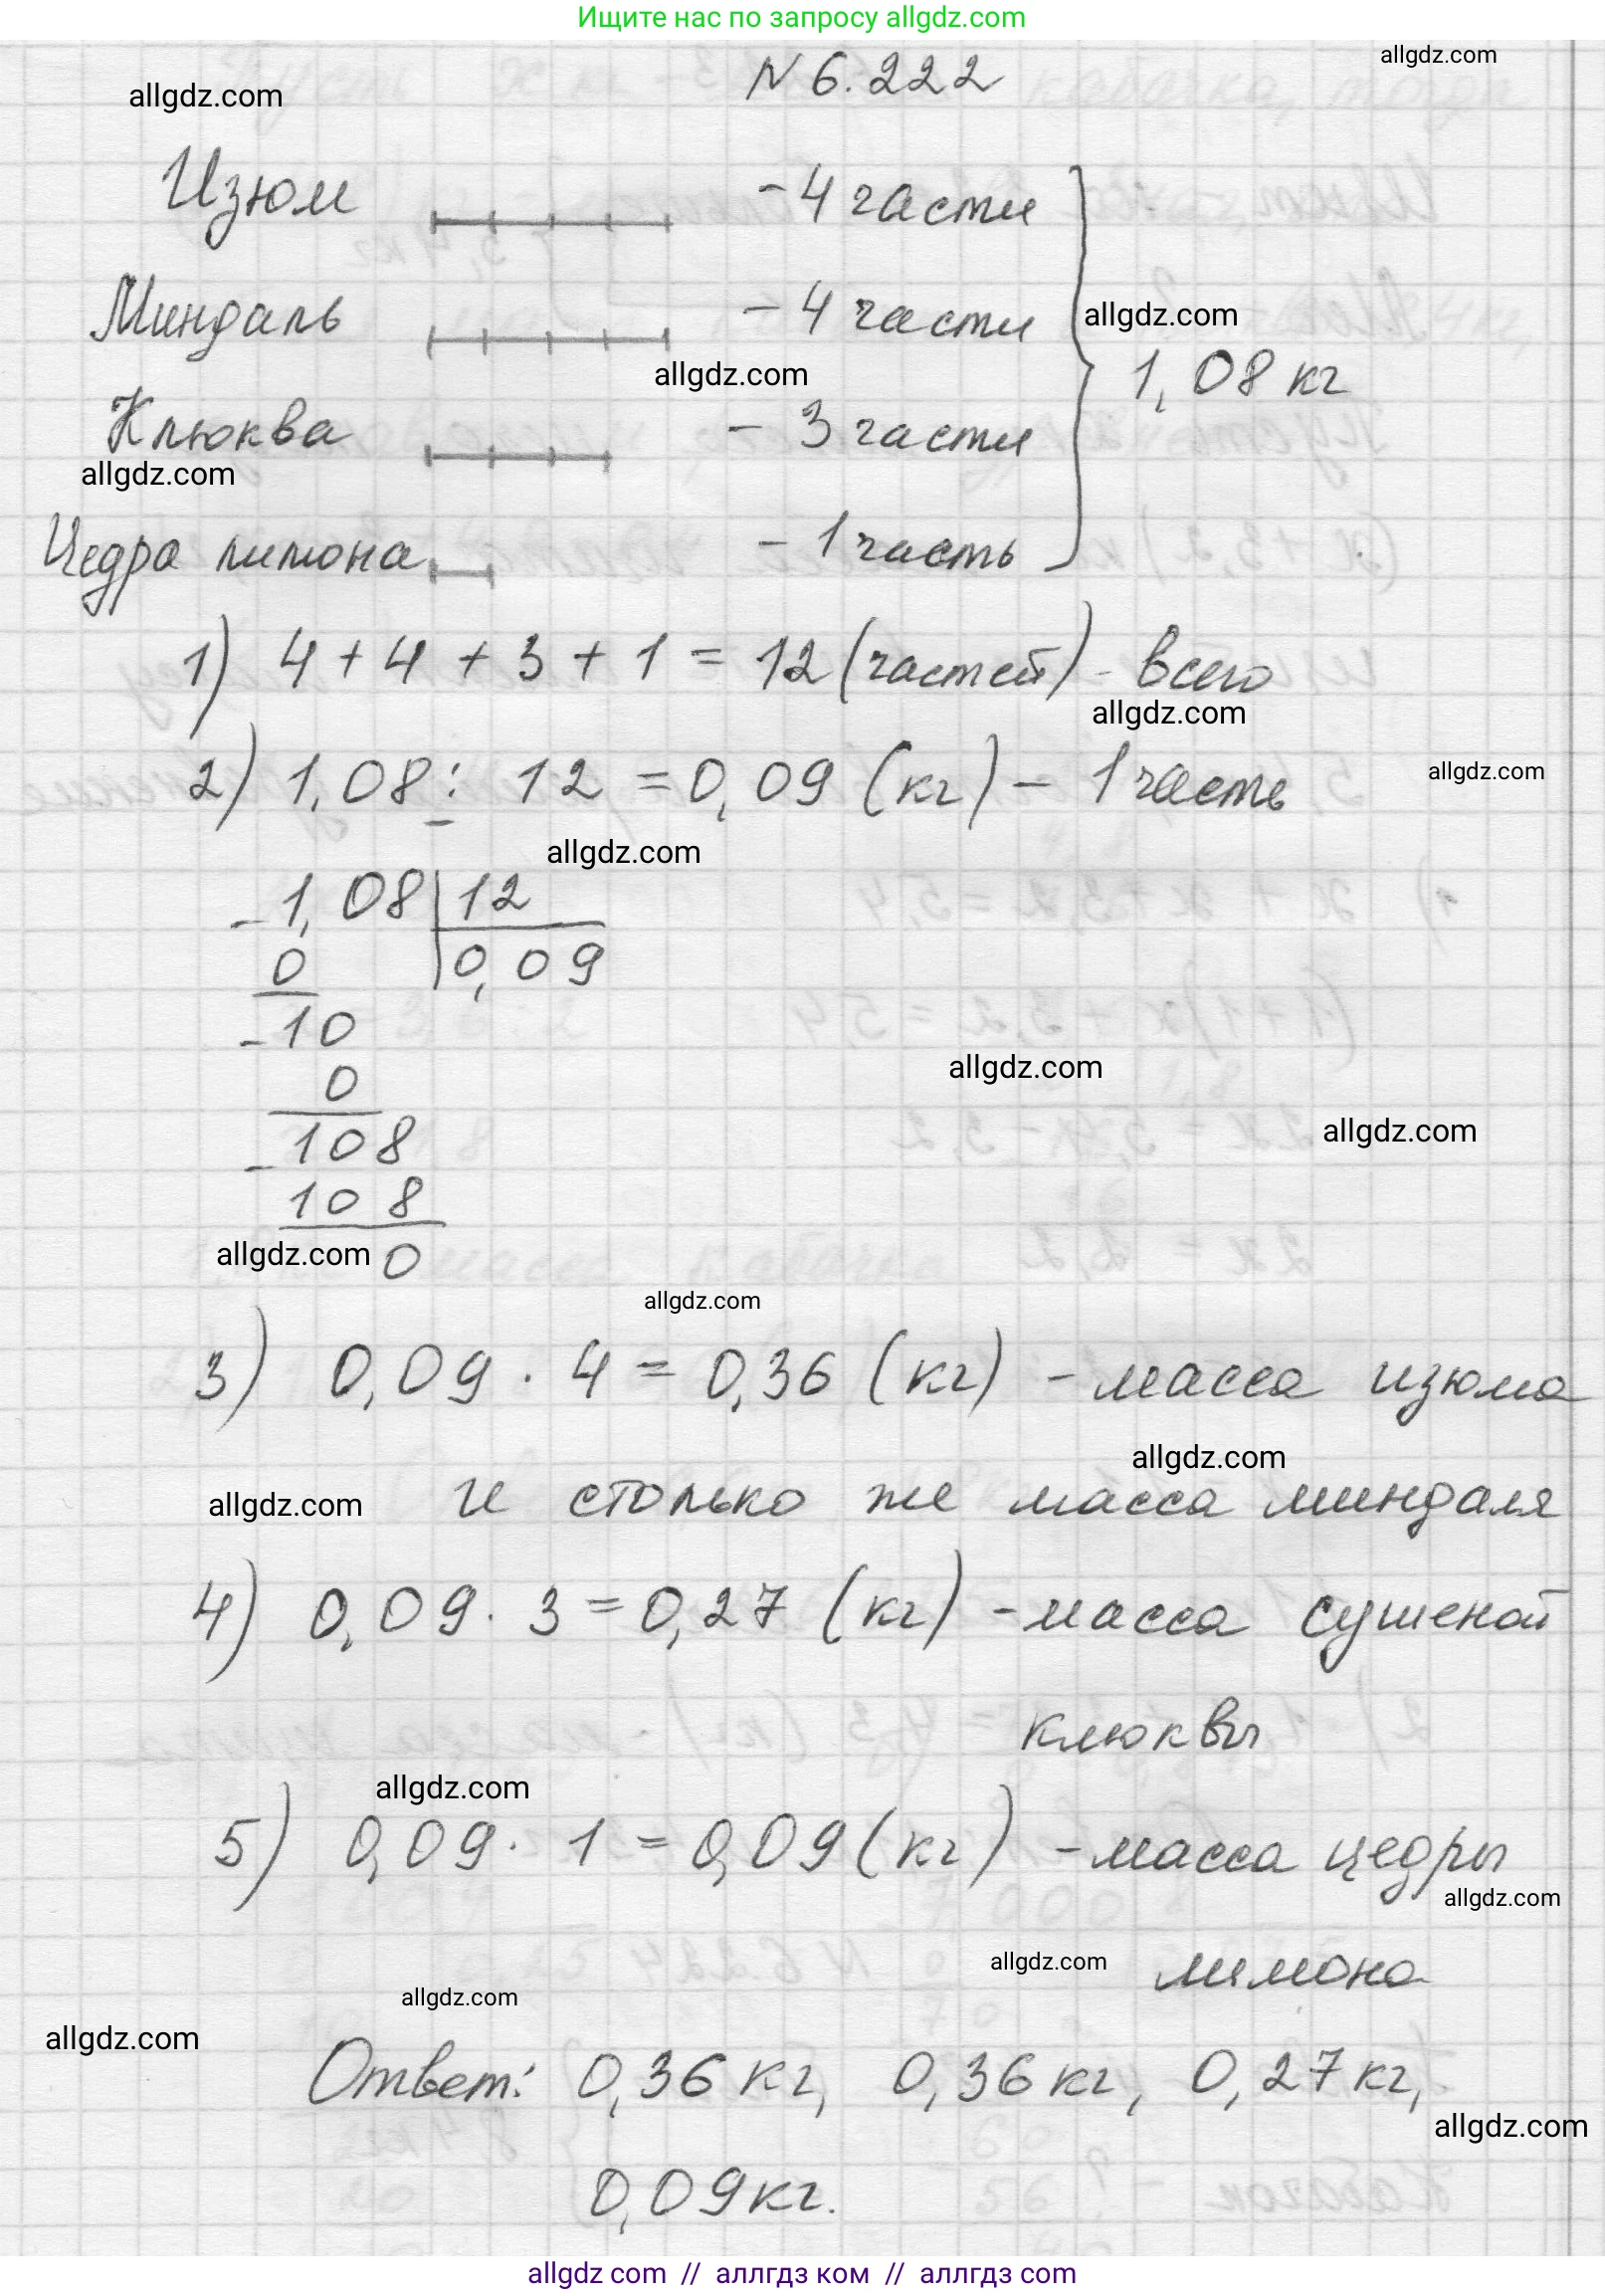 Ищите нас по запросу allgdz.com
allgdz.com
N 6.222
allgdz.com
Изюм - 4 части
Миндаль - 4 части
allgdz.com
allgdz.com
1,08 кг
Клюква - 3 части
allgdz.com
Цедра лимона - 1 часть
1) 4 + 4 + 3 + 1 = 12 (частей) - всего
allgdz.com
2) 1,08 : 12 = 0,09 (кг) - 1 часть
allgdz.com
allgdz.com
- 1,08 12
0 0,09
- 10
0
allgdz.com
- 108
allgdz.com
108
allgdz.com 0
allgdz.com
3) 0,09 · 4 = 0,36 (кг) - масса изюма
allgdz.com
allgdz.com и столько же масса миндаля
4) 0,09 · 3 = 0,27 (кг) - масса сушеной
клюквы
allgdz.com
5) 0,09 · 1 = 0,09 (кг) - масса цедры
allgdz.com
allgdz.com лимона
allgdz.com
allgdz.com
Ответ: 0,36 кг, 0,36 кг, 0,27 кг,
allgdz.com
0,09 кг.
allgdz.com // аллгдз ком // аллгдз com